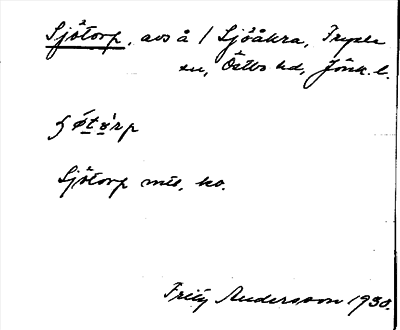 Sjötorp, avs å / Sjöåkra, Tryseru
sn, Östbo hd, Jönk. l.
Sjötorp mtl, ko.
Fritz Andersson 1930.